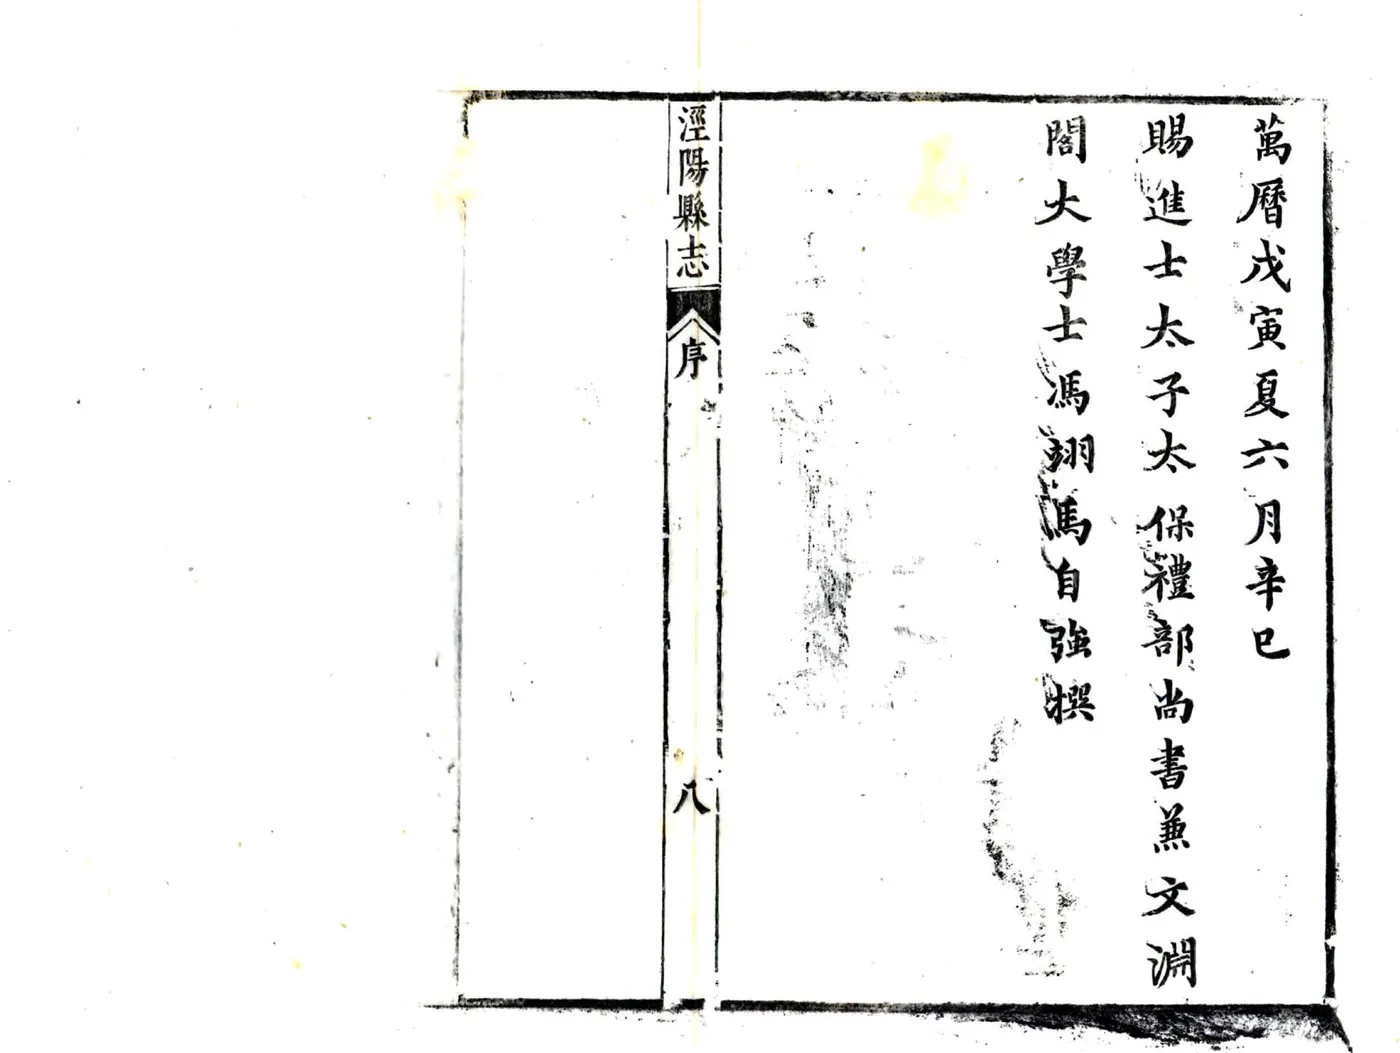 萬曆戊寅夏六月辛巳
賜進士太子太保禮部尚書兼文淵
閣大學士馮翊馬自強撰
涇陽縣志
序
八